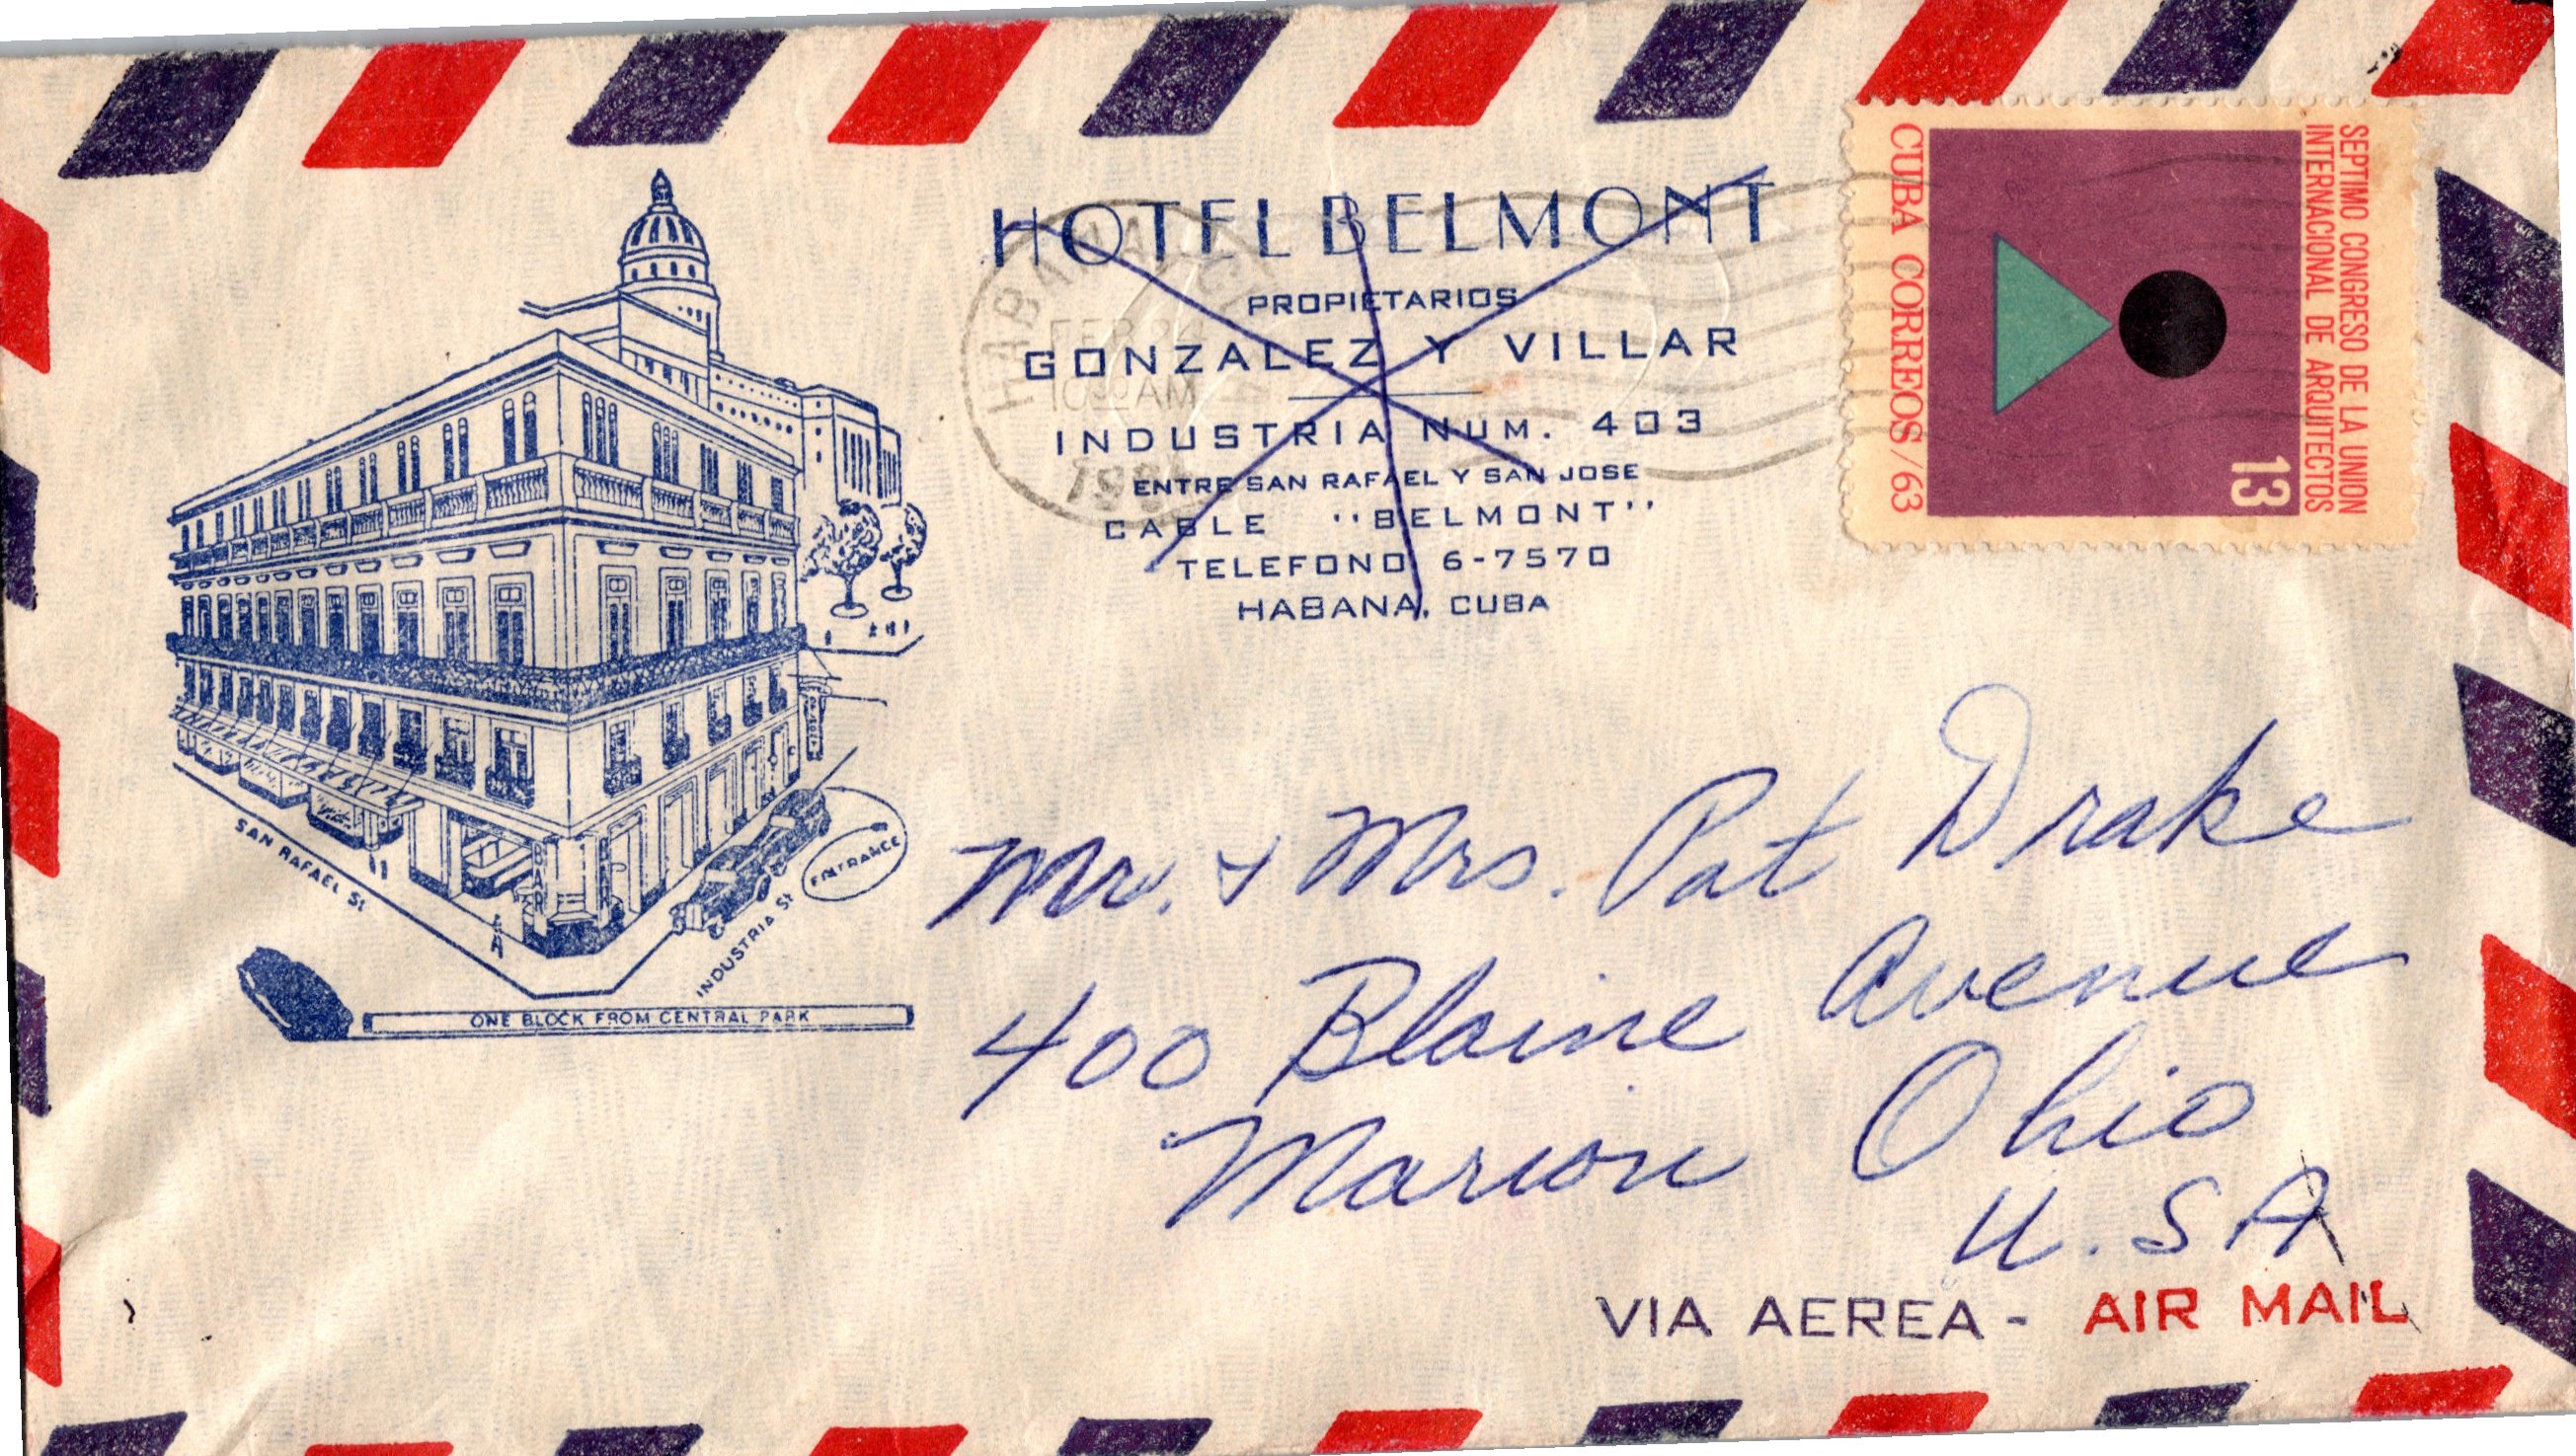 HOTEL BELMONT
PROPIETARIOS
GONZALEZ Y VILLAR
INDUSTRIA NUM. 403
ENTRE SAN RAFAEL Y SAN JOSE
CABLE "BELMONT"
TELEFONO 6-7570
HABANA, CUBA
HABANA
FEB
10 30 AM
SEPTIMO CONGRESO DE LA UNION
INTERNACIONAL DE ARQUITECTOS
13
CUBA CORREOS/63
BAR
SAN RAFAEL St
INDUSTRIA St
ENTRANCE
ONE BLOCK FROM CENTRAL PARK
Mr. & Mrs. Pat Drake
400 Blaine Avenue
Marion Ohio
U.SA
VIA AEREA - AIR MAIL